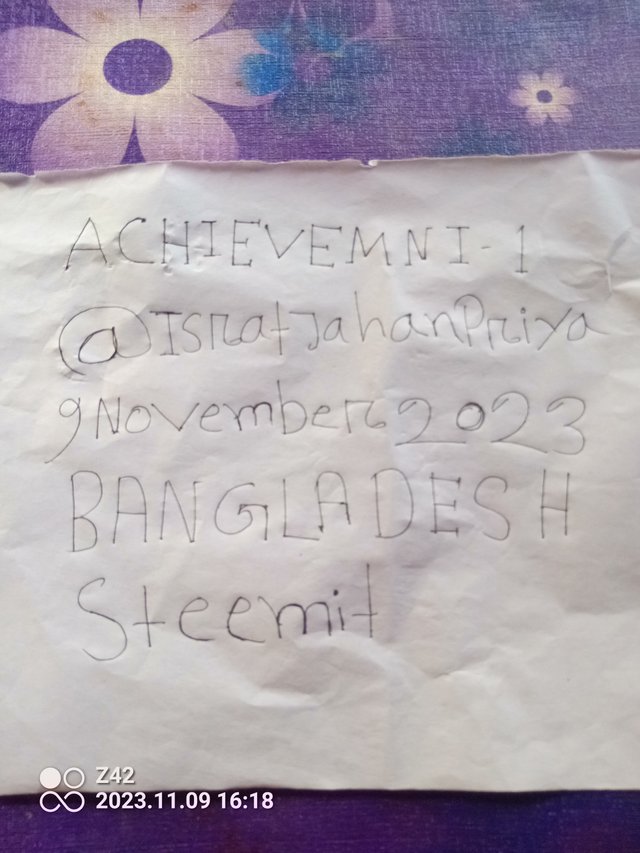 ACHIEVEMNI-1
@IsratJahanPriya
9November2023
BANGLADESH
Steemit
Z42
2023.11.09 16:18